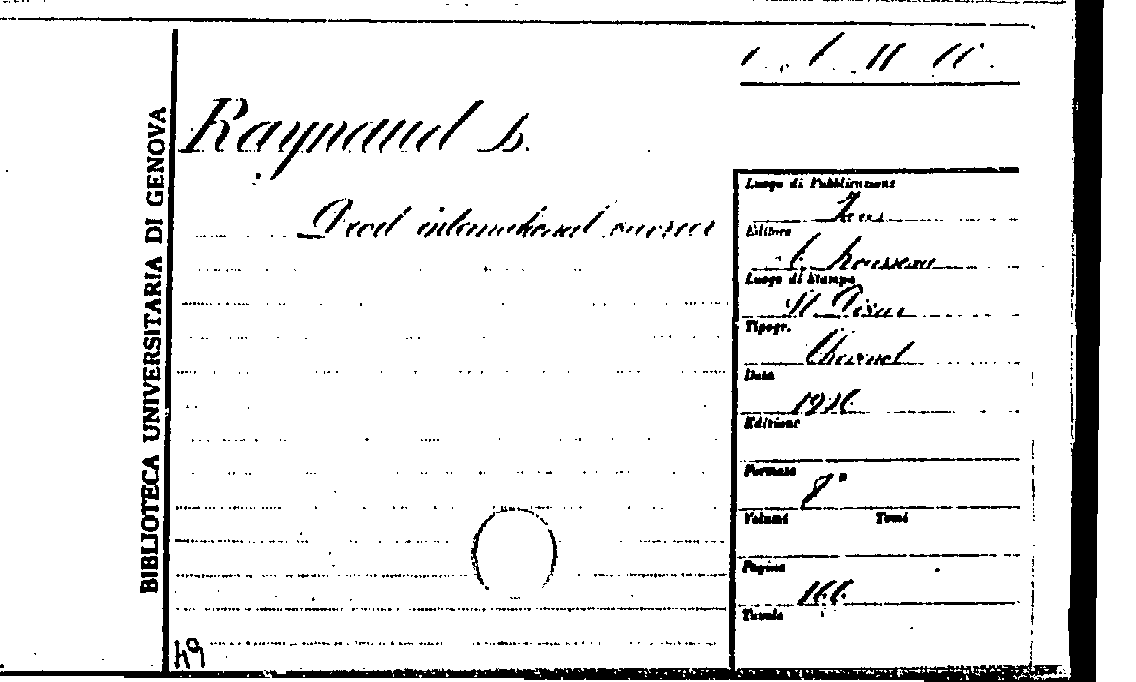 BIBLIOTECA UNIVERSITARIA DI GENOVA
Raynaud B.
Droit international ouvrier
Luogo di Pubblicazione
Editore
A. Rousseau
Luogo di Stampa
Tipogr.
Data
Edizione
Formato
8°
Volumi Tomi
Pagine
166
Tavole
49